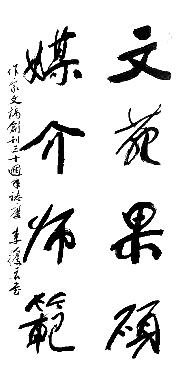 文苑果碩
媒介师範
作家文摘創刊三十週年誌慶